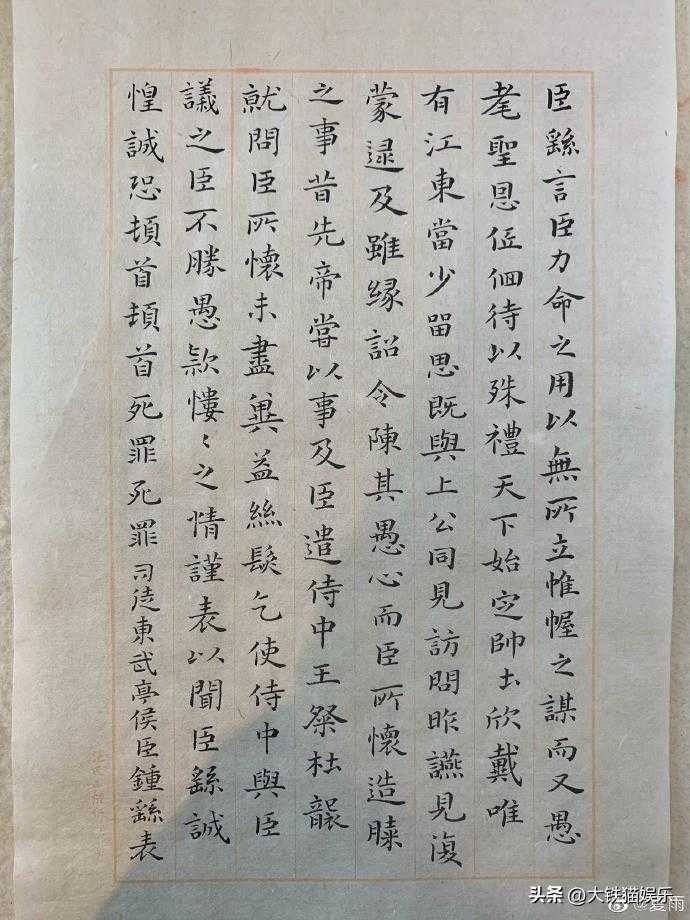 臣繇言臣力命之用以無所立惟幄之謀而又愚
耄聖恩伍佪待以殊禮天下始定帥土欣戴唯
有江東當少留思既與上公同見訪問昨讌見復
蒙逯及雖緣詔令陳其愚心而臣所懷造膝
之事昔先帝嘗以事及臣遣侍中王粲杜襲
就問臣所懷未盡冀益絲髮乞使侍中與臣
議之臣不勝愚款慺〻之情謹表以聞臣繇誠
惶誠恐頓首頓首死罪死罪司徒東武亭侯臣鍾繇表
头条 @大铁猫娱乐
@夏雨